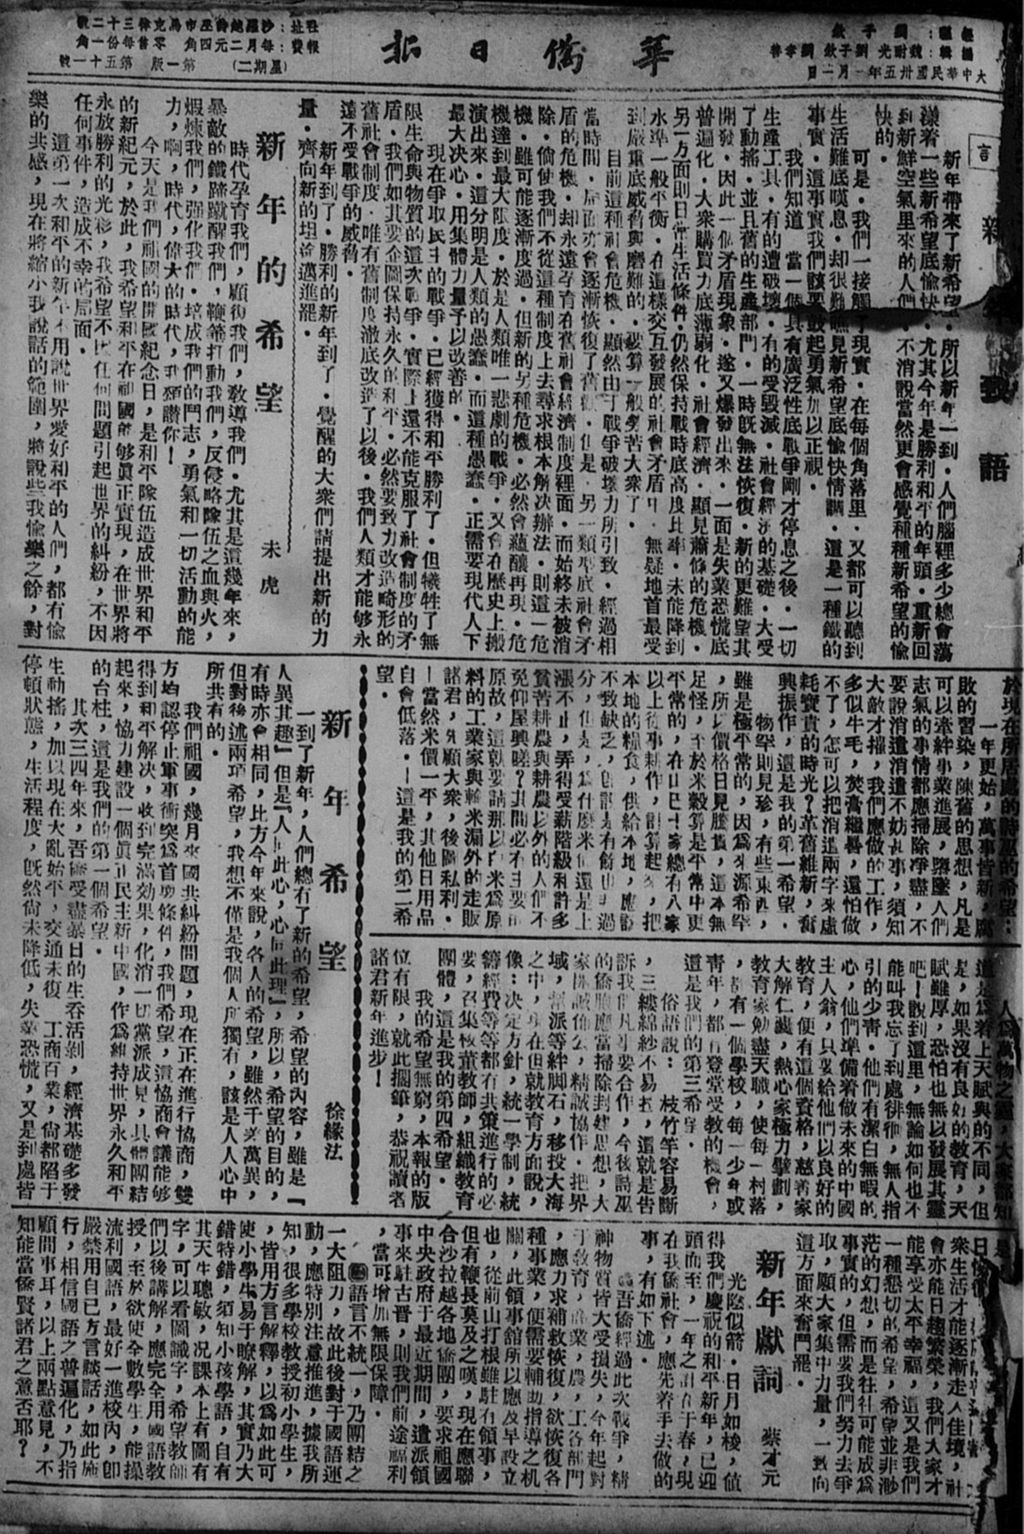 華僑日報
大中華民國卅五年一月一日
(星期二)
第一版
第五十一號
言
新年致語
新年帶來了新希望。所以新年一到，人們腦裡多少總會蕩
漾着一些新希望底愉快。尤其今年是勝利和平的年頭。重新回
到新鮮空氣里來的人們，不消說當然更會感覺種種新希望的愉
快的。
可是，我們一接觸了現實，在每個角落里，又都可以聽到
生活難底嘆息，却很難瞧見新希望底愉快情調，這是一種鐵的
事實。這事實我們該要鼓起勇氣加以正視。
我們知道，當一個具有廣泛性底戰爭剛才停息之後，一切
生產工具，有的遭破壞，有的受毀滅。社會經濟的基礎，大受
了動搖。並且舊的生產部門，一時既無法恢復，新的更難望其
開發，因此一個矛盾現象，遂又爆發出來。一面是失業恐慌底
普遍化，大衆購買力底薄弱化，社會經濟，顯見蕭條的危機。
另一方面則日常生活條件，仍然保持戰時底高度比率，未能降到
水準一般平衡。在這樣交互發展的社會矛盾中，無疑地首最受
到嚴重底威脅與磨難的，要算一般勞苦大衆了。
目前這種社會危機，顯然由于戰爭破壞力所引致，經過相
當時間，局面亦會逐漸恢復了舊觀，但是，另一類型底社會矛
盾的危機，却永遠孕育在舊社會經濟制度裡面，而始終未被消
除。倘使我們不從這種制度上去尋求根本解決辦法，則這一危
機，雖可能逐漸度過，但新的另種危機，必然會蘊釀再現。危
機達到最大限度，於是人類唯一悲劇的戰爭，又會在歷史上搬
演出來。這分明是人類的愚蠢，而這種愚蠢，正需要現代人下
最大决心，用集體力量予以改善的。
現在爭取民主的戰爭，已經獲得和平勝利了。但犧牲了無
限生命與物質的這次戰爭，實際上還不能克服了社會制度的矛
盾。我們如其要企圖保持永久的和平，必然要致力改造畸形的
舊社會制度，唯有舊制度澈底改造了以後，我們人類才能够永
遠不受戰爭的威脅。
新年到了，勝利的新年到了，覺醒的大衆們請提出新的力
量，齊向新的坦途邁進罷。
新年的希望
未虎
時代孕育我們，顧復我們，教導我們。尤其是這幾年來，
暴敵的鐵蹄蹴醒我們，鞭箠打動我們，反侵略隊伍之血與火，
煅煉我們，强化我們。培成我們的鬥志，勇氣和一切活動的能
力，啊，時代，偉大的時代，我頌讚你！
今天是我們祖國的開國紀念日，是和平隊伍造成世界和平
的新紀元，於此，我希望和平在祖國能够眞正實現，在世界將
永放勝利的光彩，我希望不因任何問題引起世界的糾紛，不因
任何事件，造成不幸的局面。
這第一次和平的新年不用說世界愛好和平的人們，都有愉
樂的共感，現在將縮小我說話的範圍，將說些我愉樂之餘，對
於現在所居處的詩巫的希望：
一年更始，萬事皆新，腐
敗的習染，陳舊的思想，凡是
可以牽絆事業進展，墮墜人們
志氣的事情都應掃除淨盡，不
要說消遣消遣不妨甚事，須知
大敵才摧，我們應做的工作，
多似牛毛，焚膏繼晷，還怕做
不了，怎可以把消遣兩字來虛
耗寶貴的時光？革舊維新，奮
興振作，這是我的第一希望。
物罕則見珍，有些東西，
雖是極平常的，因爲來源希罕
，所以價格日見騰貴，這本無
足怪，至於米穀算是平常中更
平常的，在
以上從事耕作，計算起來，把
本地的糧食，供給本地，應該
不致缺乏，
分，但是，爲什麽米價還是上
漲不止，弄得受薪階級和許多
貧苦耕農與耕農以外的人們不
免仰屋興嗟？其間必有主要的
原故，這就要請那以白米爲原
料的工業家與輸米漏外的走販
諸君，先顧大衆，後圖私利。
—當然米價一平，其他日用品
自會低落。—這是我的第二希
望。
人爲萬物之靈，大家都知
道是爲着上天賦與的不同，但
是，如果沒有良好的教育，天
賦雖厚，恐怕也無以發展其靈
吧！說到這里，無論如何也不
能叫我忘了到處徘徊，無人指
引的少靑。他們有潔白無暇的
心，他們準備着做未來的中國
主人翁，只要給他們以良好的
教育，便有這個資格，慈善家
大解仁囊，熱心家極力擘劃，
教育家勉盡天職，使每一村落
，都有一個學校，每一少年或
靑年，都有登堂受教的機會，
這是我們的第三希望。
俗語說：「枝竹竿容易斷
，三縷綿紗不易拉」，這就是告
訴我們凡事要合作，今後詩巫
的僑胞應當掃除封建思想，大
家開誠佈公，精誠協作，把界
域，黨派等絆脚石，移投大海
之中，現在但就教育方面說，
像：決定方針，統一學制，統
籌經費等等都有共策進行的必
要，召集校董教師，組織教育
團體，這是我的第四希望。
我的希望無窮，本報的版
位有限，就此擱筆，恭祝讀者
諸君新年進步！
新年希望
徐緣法
一到了新年，人們總有了新的希望，希望的內容，雖是『
人異其趣』但是『人同此心，心同此理』，所以，希望的目的，
有時亦會相同，比方今年來說，各人的希望，雖然千差萬異，
但對後述兩項希望，我想不僅是我個人所獨有，該是人人心中
所共有的。
我們祖國，幾月來國共糾紛問題，現在正在進行協商，雙
方均認停止軍事衝突爲首要條件，我們希望，這協商會議能够
得到和平解決，收到完滿効果，化消一切黨派成見，具體團結
起來，恊力建設一個眞正民主新中國，作爲維持世界永久和平
的台柱，這是我們的第一個希望。
其次三四年來，吾僑受盡暴日的生吞活剝，經濟基礎多發
生動搖，加以現在大亂始平，交通未復，工商百業，尙都陷于
停頓狀態，生活程度，旣然尙未降低，失業恐慌，又是到處皆
是，
衆生活才能逐漸走入佳境，社
會亦能日趨繁榮，我們大家才
能享受太平幸福，這又是我們
一種懇切的希望，希望並非渺
茫的幻想，而是往往可能成爲
事實的，但需要我們努力去爭
取，願大家集中力量，一致向
這方面來奮鬥罷。
新年獻詞
蔡才元
光陰似箭，日月如梭，値
得我們慶祝的和平新年，已迎
頭而至，一年之計在于春，現
在我僑社會，應先着手去做的
事，有如下述。
吾僑經過此次戰爭，精
神物質皆大受損失，今年起對
于教育，商業，農，工各部門
，應力求補救恢復，欲恢復各
種事業，便需要輔助指導之机
關，此領事舘所以應及早設立
也，從前山打根雖駐有領事，
但有鞭長莫及之嘆，現在應聯
合沙拉越各地僑團，要求祖國
中央政府于最近期間，遣派領
事來駐古晋，則我們前途福利
，當可增加無限保障。
語言不統一，乃團結之
一大阻力，故此後對于國語運
動，應特別注意推進，據我所
知，很多學校教授初小學生，
，皆用方言解釋，以爲如此可
使小學生易于瞭解，其實乃大
錯特錯，須知小孩學語，自有
其天生聰敏，况課本上有圖有
字，可以看圖識字，希望教師
們以後講解，應完全用國語教
授，至於欲使全數學生，能操
流利國語，最好一進校內，卽
嚴禁用自已方言談話，如此施
行，相信國語之普遍化，乃指
顧間事耳，以上兩點意見，不
知能當僑賢諸君之意否耶？